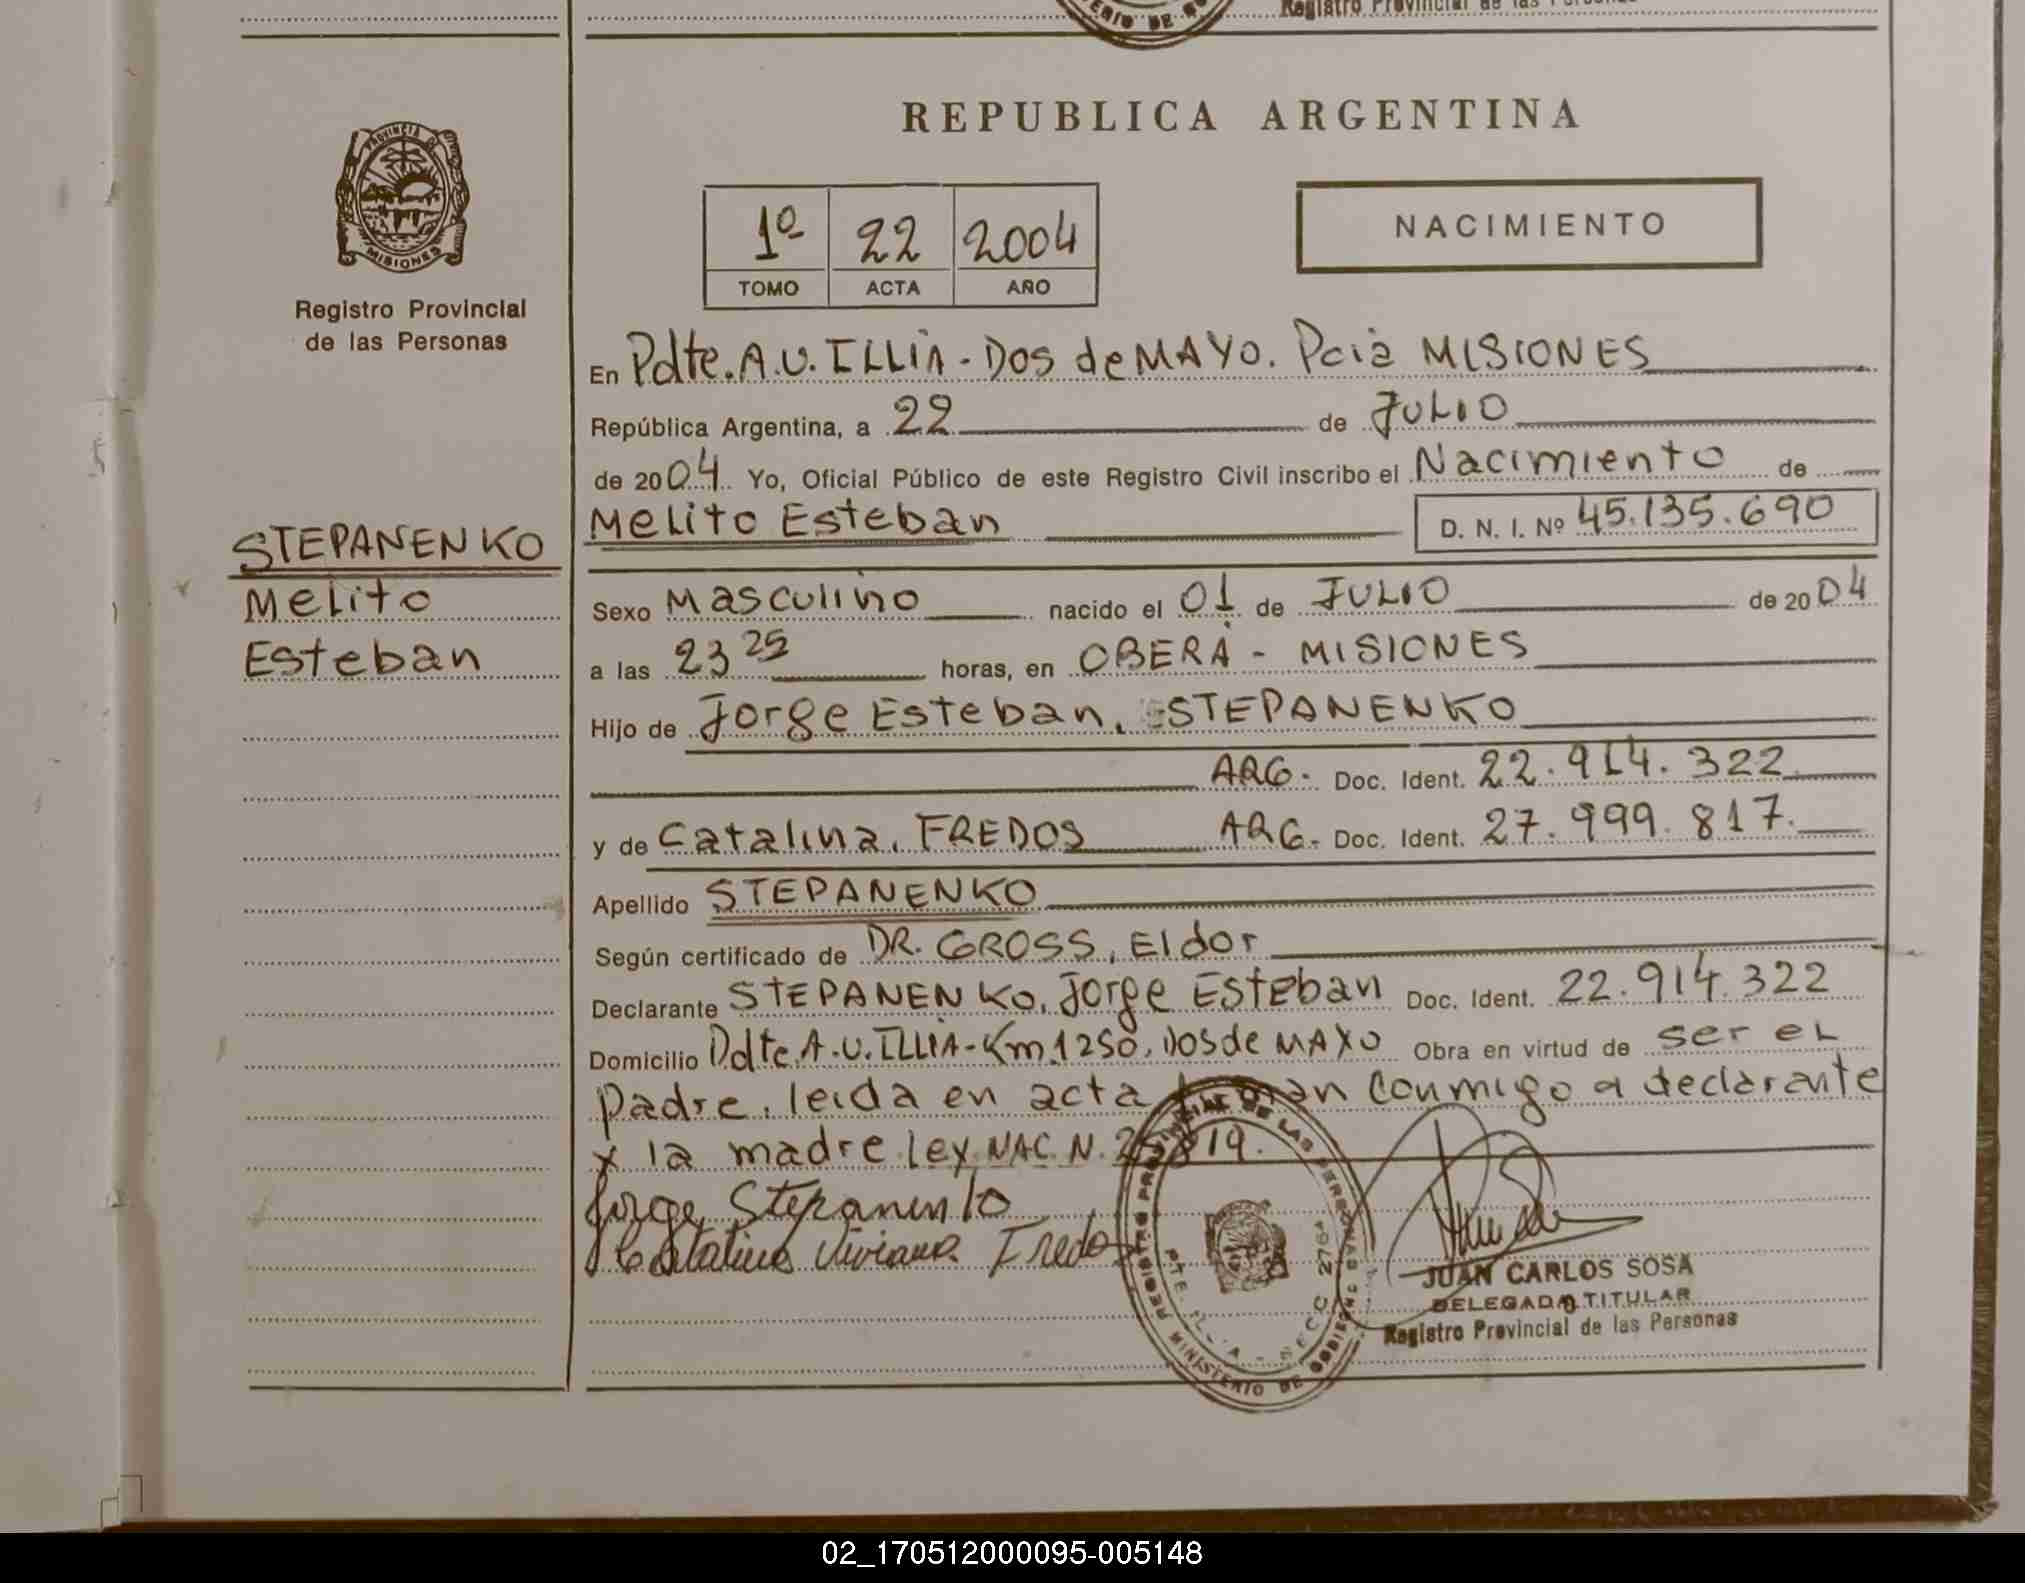 Registro Provincial de las Personas
PROVINCIA DE
MISIONES
Registro Provincial
de las Personas
REPUBLICA ARGENTINA
1º 22 2004
TOMO ACTA AÑO
NACIMIENTO
En Pdte. A. U. ILLIA - DOS de MAYO. Pcia MISIONES
República Argentina, a 22 de JULIO
de 2004 Yo, Oficial Público de este Registro Civil inscribo el Nacimiento de
Melito Esteban D. N. I. Nº 45.135.690
STEPANENKO
Melito
Esteban
Sexo Masculino nacido el 01 de JULIO de 2004
a las 23 25 horas, en OBERÁ - MISIONES
Hijo de Jorge Esteban, STEPANENKO
ARG. Doc. Ident. 22.914.322
y de Catalina, FREDOS ARG. Doc. Ident. 27.999.817.
Apellido STEPANENKO
Según certificado de DR. GROSS, Eldor
Declarante STEPANENKO, Jorge Esteban Doc. Ident. 22.914.322
Domicilio Pdte. A. U. ILLIA - Km. 1250, Dos de MAYO Obra en virtud de ser el
padre, leida en acta conmigo a declarante
y la madre ley NAC. N. 25819.
Jorge Stepanenko
Catalina Viviana Fredos
REGISTRO PROVINCIAL DE LAS PERSONAS
MINISTERIO DE GOBIERNO
PTE. ILLIA - SECC 2761
JUAN CARLOS SOSA
DELEGADO TITULAR
Registro Provincial de las Personas
02_170512000095-005148